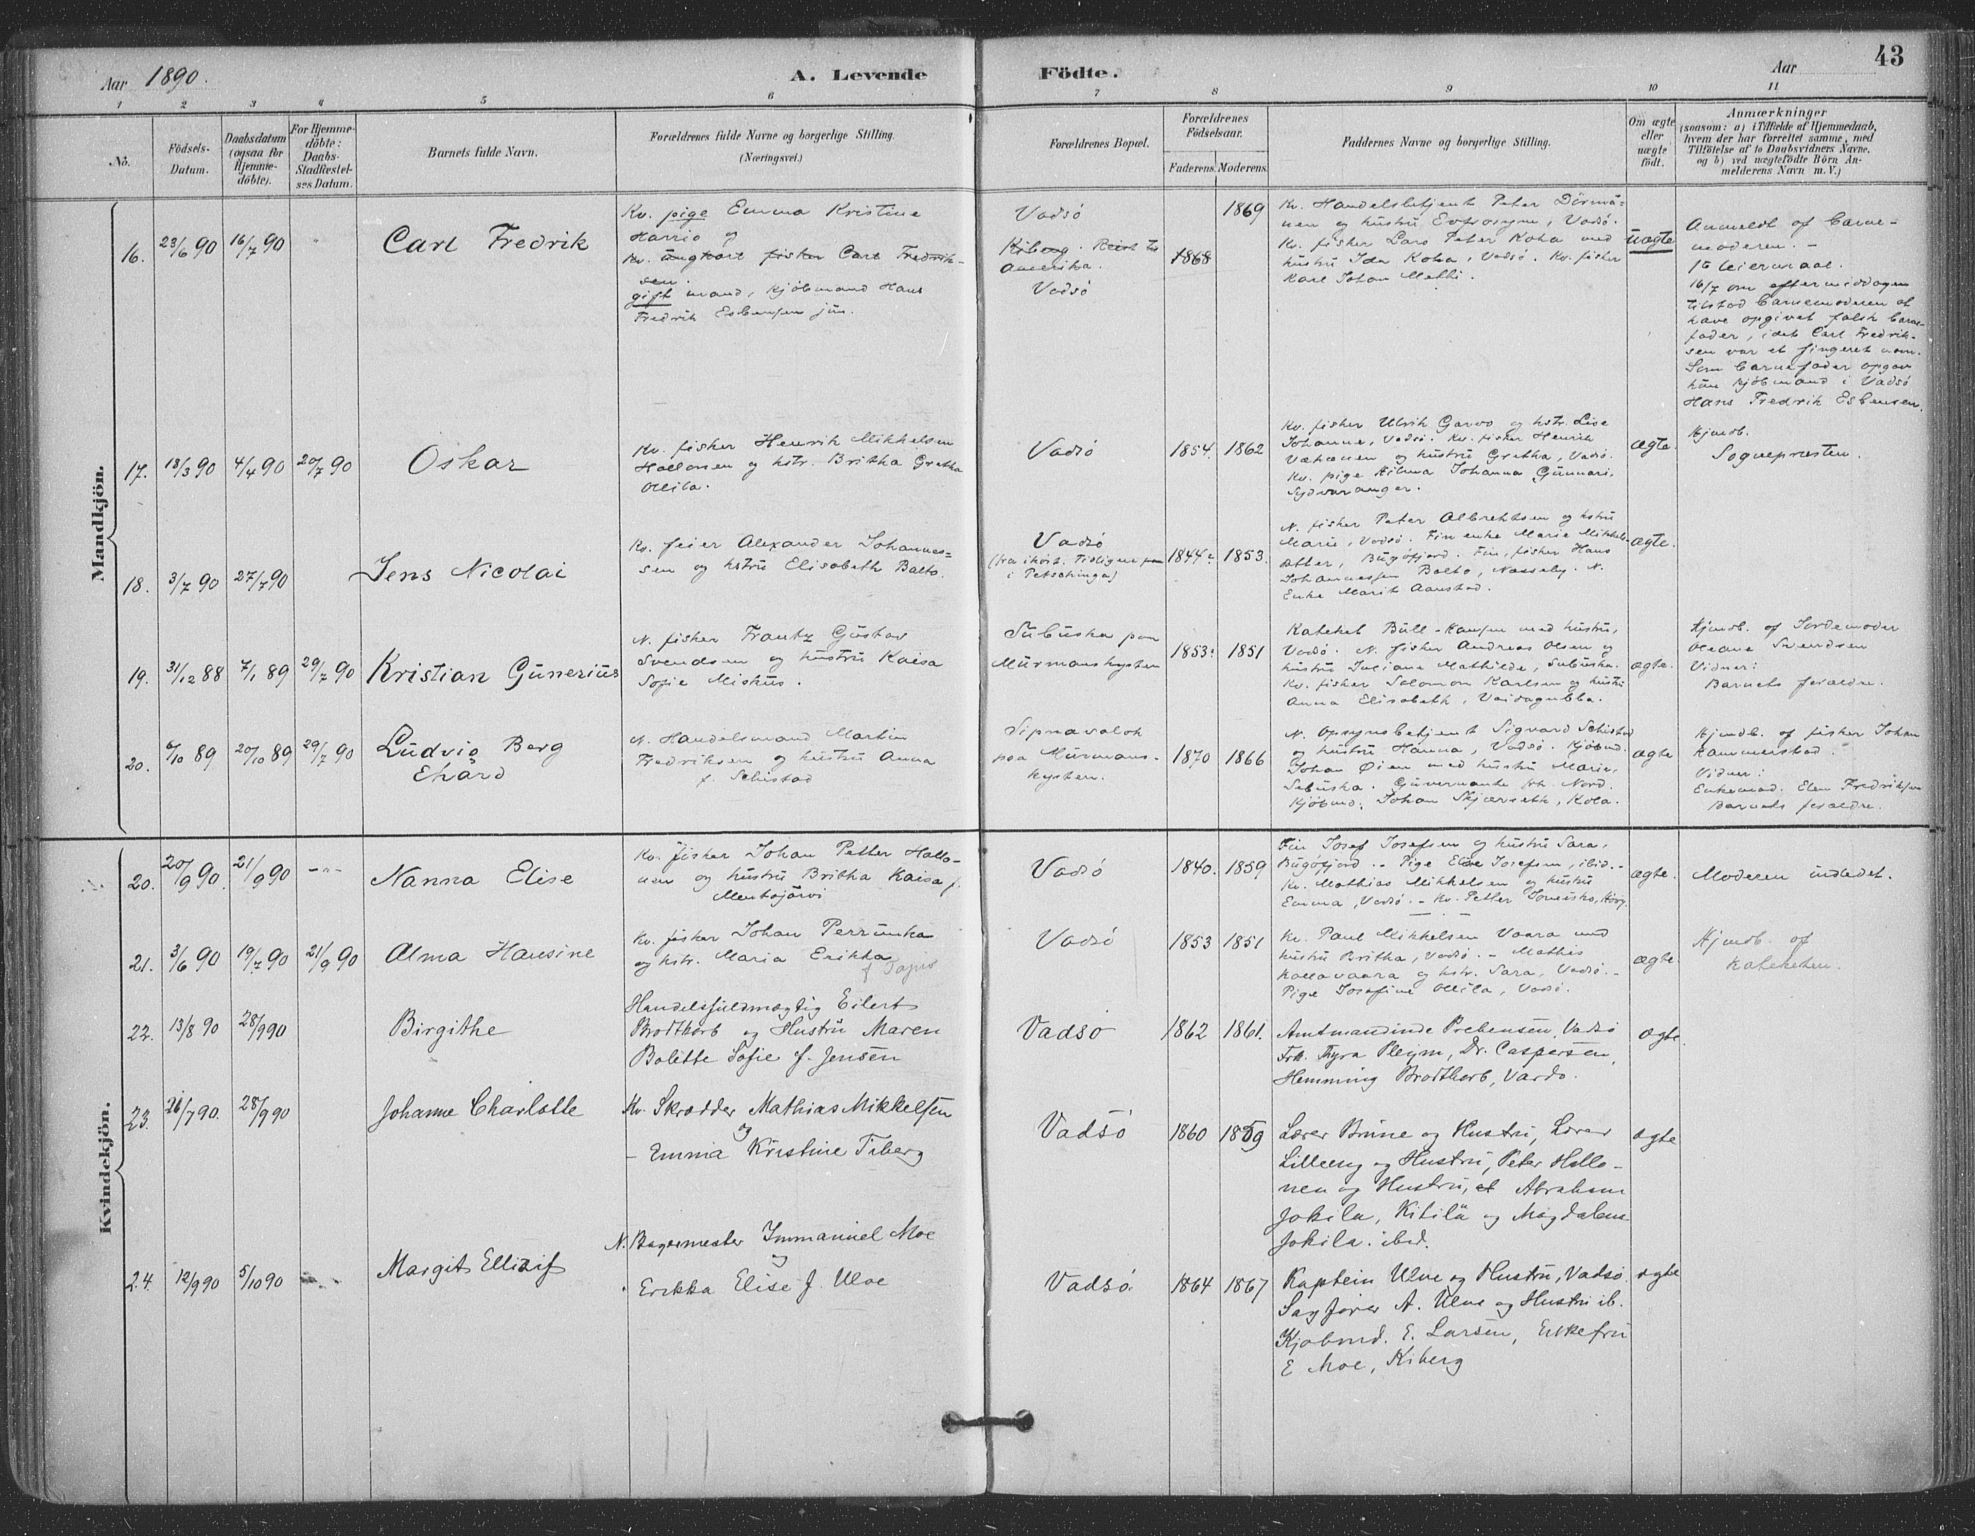 Aar 1890.
A. Levende Födte.
Aar
43
1 2 3 4 5 6 7 8 9 10 11
No.
Födsels-
Datum.
Daabsdatum
(ogsaa for
Hjemme-
döbte).
For Hjemme-
döbte:
Daabs-
Stadfæstel-
ses Datum.
Barnets fulde Navn.
Forældrenes fulde Navne og borgerlige Stilling.
(Næringsvei.)
Forældrenes Bopæl.
Forældrenes
Födselsaar.
Faderens. Moderens.
Faddernes Navne og borgerlige Stilling.
Om ægte
eller
uægte
födt.
Anmærkninger
(saasom: a) i Tilfælde af Hjemmedaab,
hvem der har forrettet samme, med
Tilföielse af to Daabsvidners Navne.
og b) ved uægtefödte Börn An-
melderens Navn m. V.)
Mandkjön.
16. 23/6 90 16/7 90
Carl Fredrik
Kv. pige Emma Kristine
Harrio og
Kv. ungkarl fisker Carl Fredrik-
sen.
gift mand, Kjöbmand Hans
Fredrik Esbensen jün.
Vadsö
Kiberg. Reist til
Amerika.
Vadsö
1869
1868
Kv. Handelsbetjent Peter
nen og hustru Eufrosyne, Vadsö.
Kv. fisher Lars Peter Koha med
hustru Ida Koha, Vadsö. Kv. fisher
Karl Johan Matti.
Uægte
Anmeldt af Barne-
moderen. -
1ste leiermaal.
16/7 om eftermiddagen
tilstod barnemoderen at
have opgivet falsk barne-
fader, idet Carl Fredrik-
sen var et fingeret navn.
Som barnefader opgav
hun kjöbmand i Vadsö
Hans Fredrik Esbensen.
17. 18/3 90 4/4 90 20/7 90
Oskar
Kv. fisker Henrik Mikkelsen
Hallonen og hstr. Britha Gretha
Ollila.
Vadsö
1854. 1862
Kv. fisher Ulrik Garvo og hstr. Lise
Johanne, Vadsö. Kv. fisher Henrik
og hustru Gretha, Vadsö.
Kv. pige Hilma Johanna Gunnari,
Sydvaranger.
ægte.
Hjmdb.
Sognepræsten.
18. 3/7 90 27/7 90
Jens Nicolai
Kv. feier Alexander Johannes-
sen og hstru Elisabeth Balto.
Vadsö
i Petschinga)
1844 1853.
N. fisher Peter Albrehtsen og hstru
Marie, Vadsö. Fin enke Marie Mikkels-
datter, Bugöfjord. Fin, fisher Hans
Johannessen Balto, Nesseby. N.
Enke Marit Aanstad.
ægte.
19. 31/12 88 7/1 89 29/7 90
Kristian Gunerius
N. fisher Frantz Gustav
Svendsen og hustru Kaisa
Sofie Miskus.
Subuska paa
Murmanskysten
1853. 1851
Kateket Bull-Hansen med hustru,
Vadsö. N. fisher Andreas Olsen og
hustru Juliane Mathilde, Subuska.
Kv. fisher Salomon Karlsen og hustru
Anna Elisabeth, Vaidagubba.
ægte.
Hjmdb. af Jordemoder
Oleave Svendsen
Vidner:
Barnets forældre.
20. 6/10 89 20/10 89 29/7 90
Ludvig Berg
Ehard
N. Handelsmand Martin
Fredriksen og hustru Anna
f. Schistad
Sipnavalok
paa Murmans-
kysten.
1870 1866
N. Opsynsbetjent Sigvard Schistad
og hustru Hanna, Vadsö. Kjöbmd.
Johan Øien med hustru Marie,
Subuska. Guvernante frk. Nord.
Kjöbmd. Johan Skjærseth, Kola.
ægte
Hjmdb. af fisher Johan
Hammerstad.
Vidner:
Enkemad. Elen Fredriksen
Barnets forældre.
Kvindekjön.
20. 20/9 90. 21/9 90 - " -
Nanna Elise
Kv. fisher Johan Petter Hallo-
nen og hustru Britha Kaisa f.
Mentojärvi
Vadsö
1840. 1859
Fin Josef Josefsen og hustru Sara,
Bugöfjord. - Pige Elise Josefsen, ibid. -
Kv. Mathias Mikkelsen og hustru
Emma, Vadsö. - Kv. Petter
ægte.
Moderen indledet.
21. 3/6 90 19/7 90 21/9 90
Alma Hansine
Kv. fisker Johan Perrunka
og hstr. Maria Erikka
Vadsö
1853 1851
Kv. Paul Mikkelsen Vaara med
hustru Britha, Vadsö. - Mathis
Kollavaara og hstr. Sara, Vadsö. -
Pige Josefine Ollila, Vadsö.
ægte.
Hjmdb. af
Kateketen.
22. 13/8 90 28/9 90
Birgithe
Handelsfuldmægtig Eilert
Brodtkorb og Hustru Maren
Bolette Sofie f. Jensen
Vadsö
1862 1861.
Amtmandinde Prebensen, Vadsö
Frk. Thyra Pleym, Dr. Caspersen,
Hemming Brodtkorb, Vardö.
ægte.
23. 26/7 90. 28/9 90
Johanne Charlotte
Kv. Skrædder Mathias Mikkelsen
og
- Emma Kristine Tiberg
Vadsö
1860 1859
Lærer Brune og Hustru, Lærer
Lilleeng og Hustru, Peter Hallo-
nen og Hustru, Abraham
Jokila, Kitilä og Magdalena
Jokila. ibid.
ægte
24. 12/9 90 5/10 90
Margit Ellisif
N. Bagermester Immanuel Moe
og
Erikka Elise f. Ulve
Vadsö.
1864 1867
Kaptein Ulve og Hustru, Vadsö
Sagförer A. Ulve og Hustru ib.
Kjöbmd. E. Larsen, Enkefru
E Moe, Kiberg
ægte